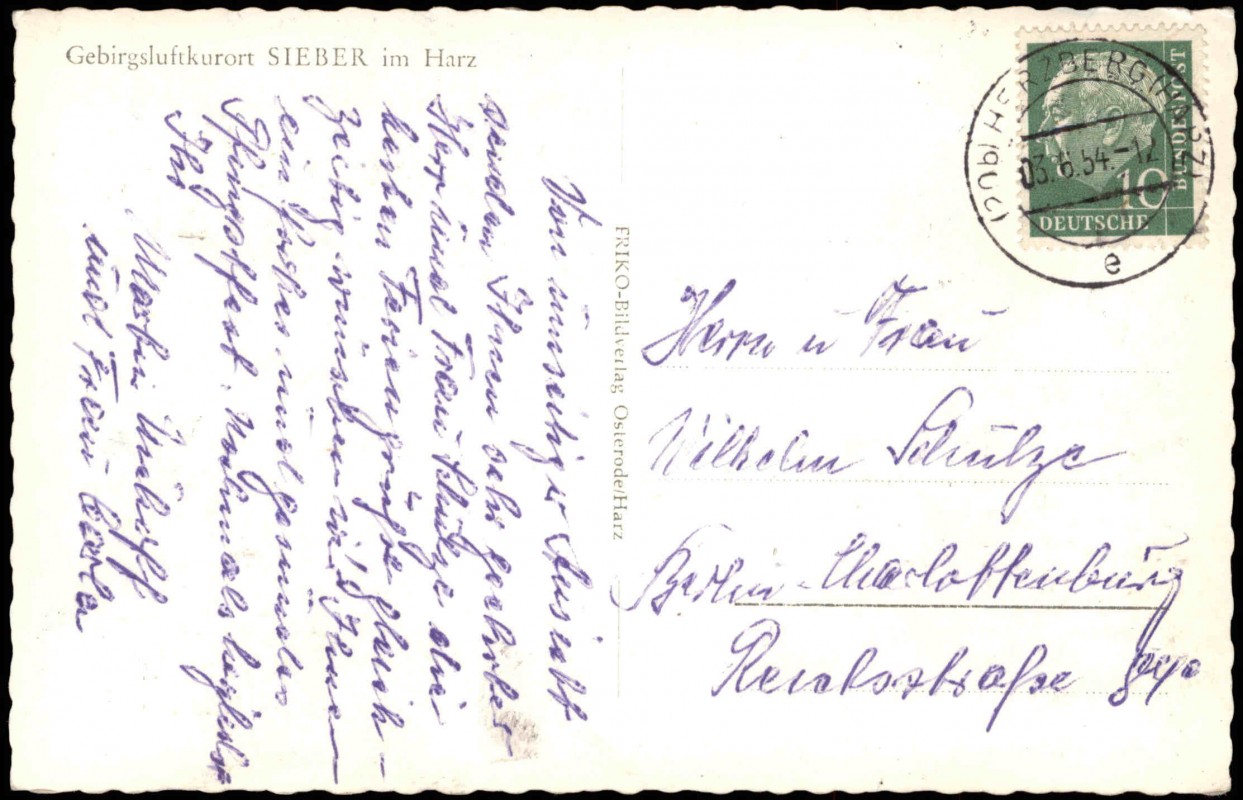 Gebirgsluftkurort SIEBER im Harz
Von umseitiger Ansicht
senden Ihnen sehr geehrter
Herr und Frau Schulze die
besten Feriengrüße gleich-
zeitig wünschen wir Ihnen
ein frohes und gesundes
Pfingstfest. Nochmals herzlichst
Ihr
Martin
und Frau Carla
FRIKO-Bildverlag Osterode/Harz
(20b) HERZBERG (HARZ)
03.6.54.-12
e
BUNDESPOST
10
DEUTSCHE
Herrn u Frau
Wilhelm Schulze
Berlin-Charlottenburg
Reichsstraße